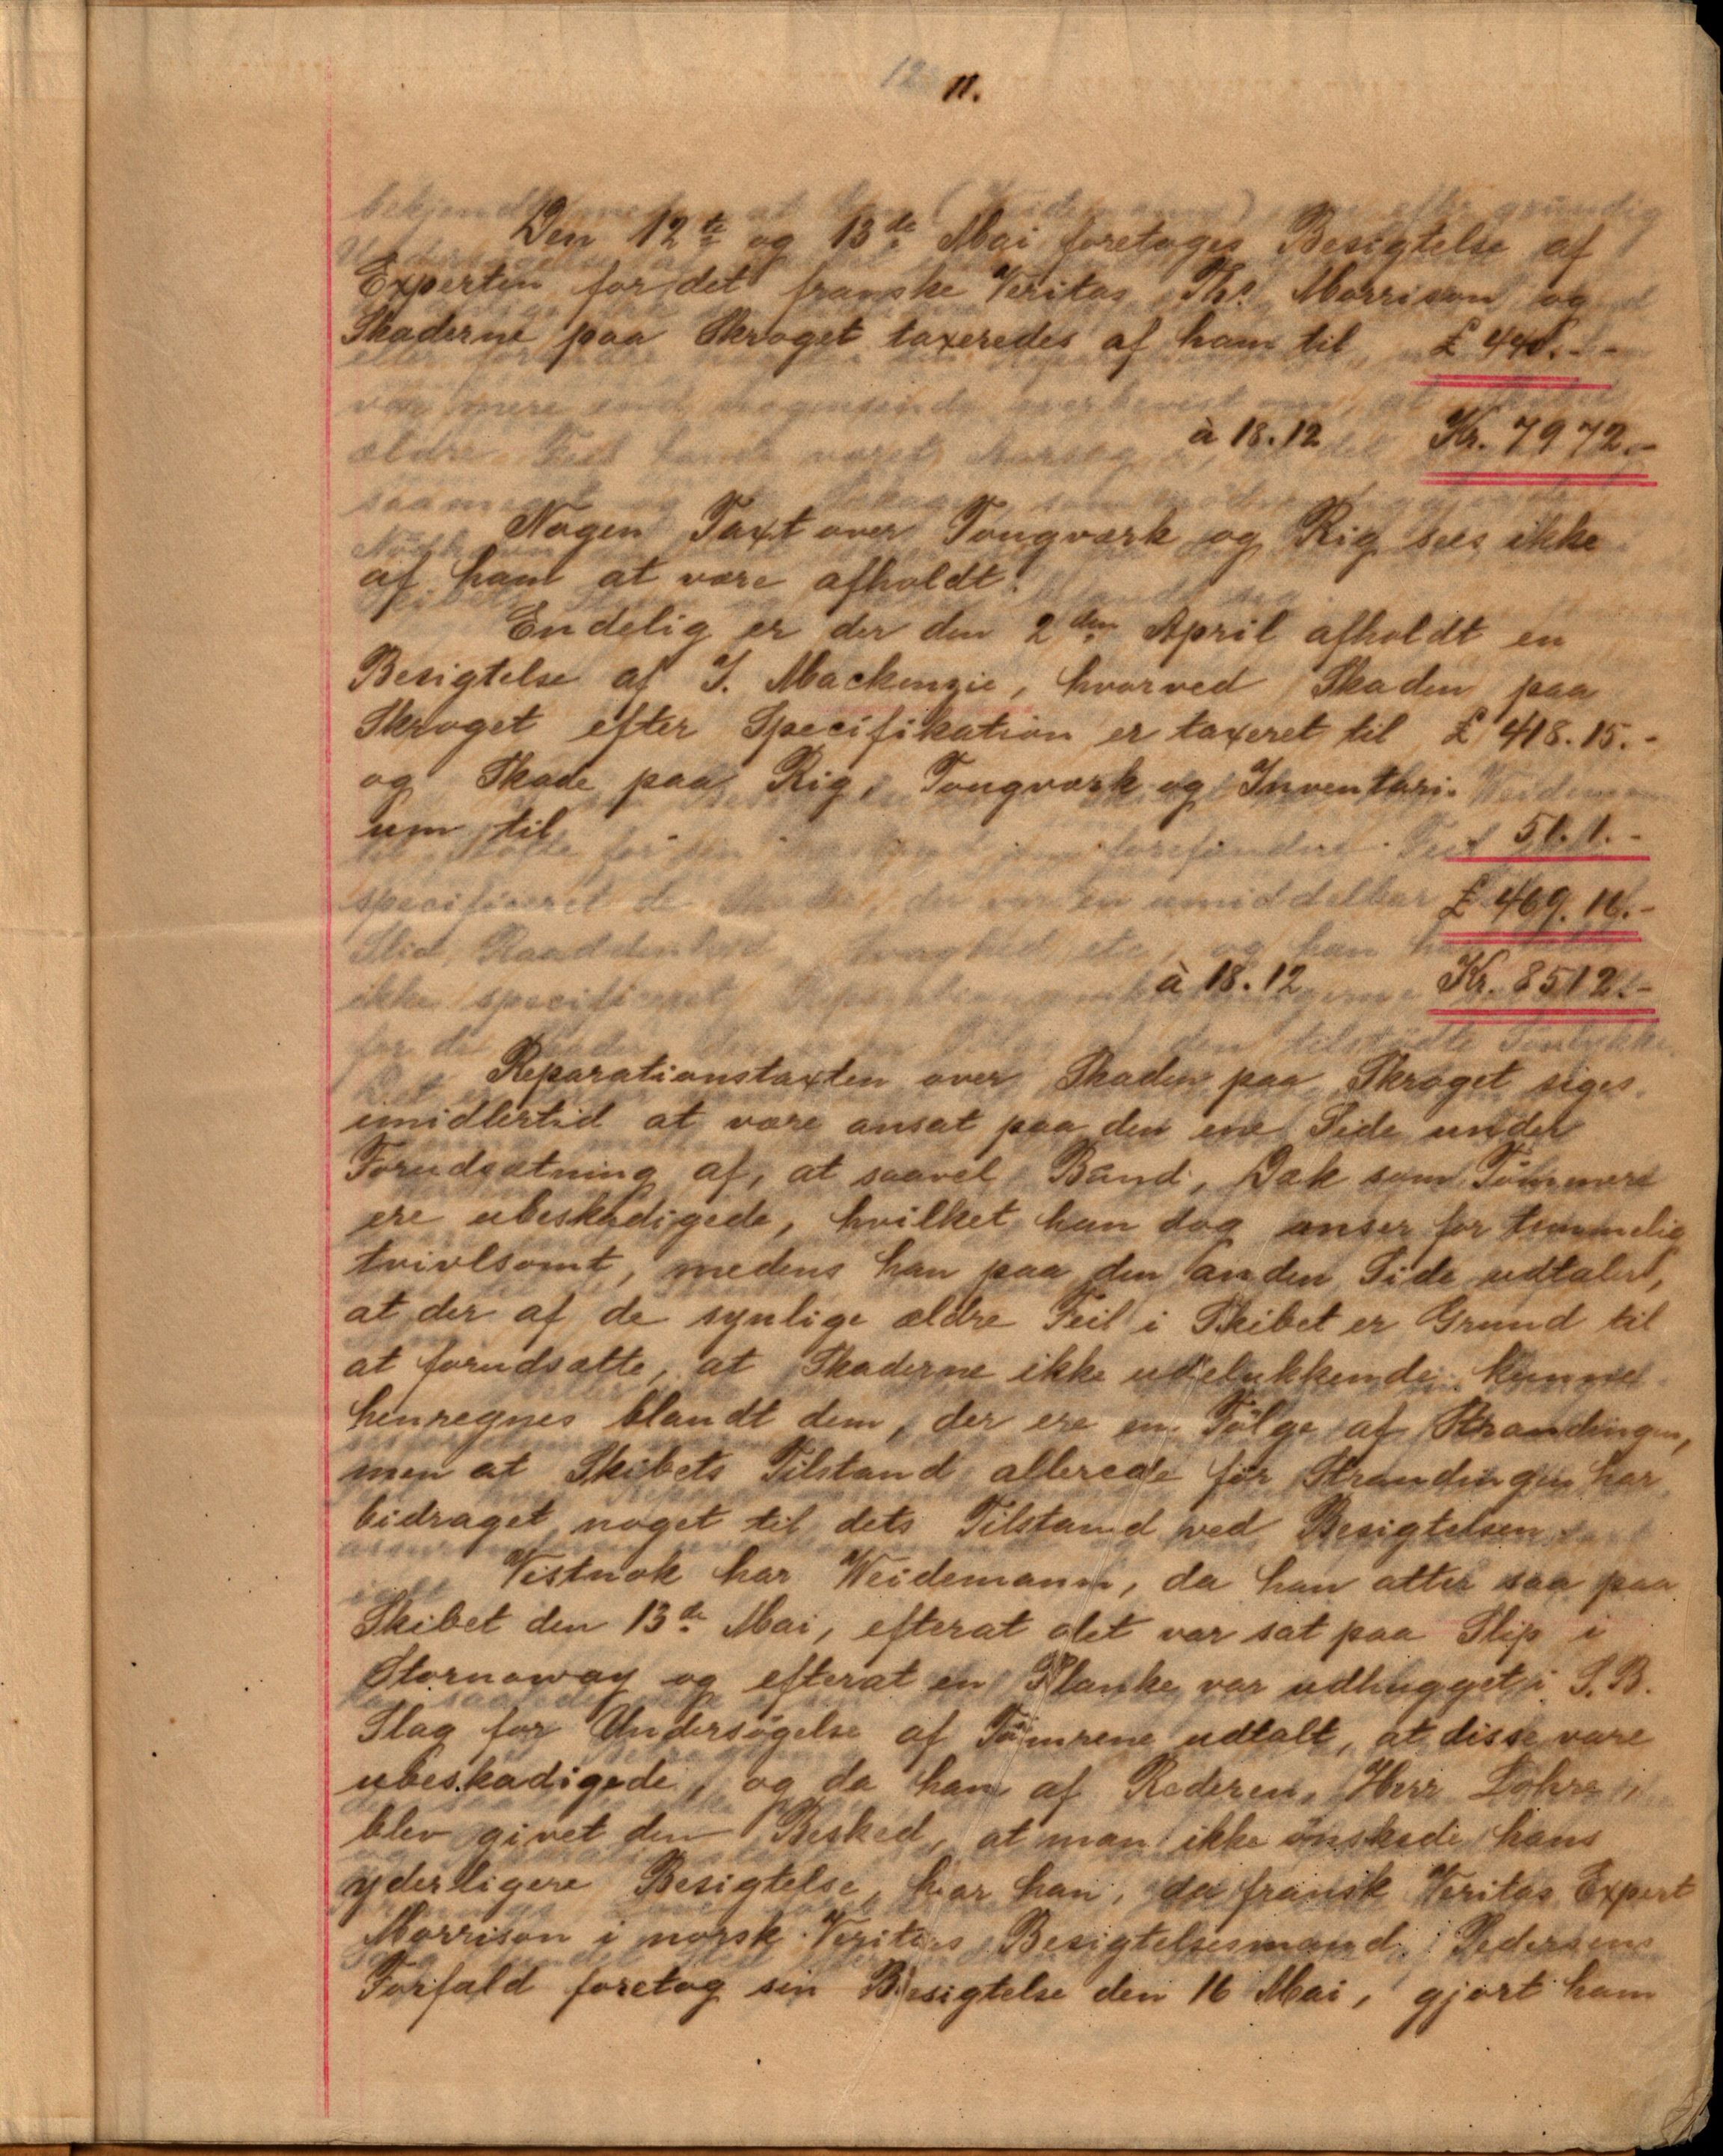 11.
Den 12te og 13de Mai foretoges Besigtelse af
Experten for det franske Veritas Ths. Morrison og
Skaderne paa Skroget taxeredes af ham til £ 440.--
à 18.12 Kr. 7972.-
Nogen Taxt over Tougværk og Rig sees ikke
af ham at være afholdt.
Endelig er der den 2den April afholdt en
Besigtelse af J. Mackenzie, hvorved Skaden paa
Skroget efter Specifikation er taxeret til £ 418.15.-
og Skade paa Rig, Tougværk og Inventari-
um til 51.1.-
£ 469.16.-
à 18.12 Kr. 8512.-
Reparationstaxten over Skaden paa Skroget siges
imidlertid at være ansat paa den ene Side under
Forudsætning af, at saavel Bund, Dæk som Tömmere
ere ubeskadigede, hvilket han dog anser for temmelig
tvivlsomt, medens han paa den anden Side udtaler,
at der af de synlige ældre Feil i Skibet er Grund til
at forudsætte, at Skaderne ikke udelukkende kunne
henregnes blandt dem, der ere en Fölge af Strandingen,
men at Skibets Tilstand allerede för Strandingen har
bidraget noget til dets Tilstand ved Besigtelsen.
Vistnok har Weidemann, da han atter saa paa
Skibet den 13de Mai, efterat det var sat paa Slip i
Stornoway og efterat en Planke var udhugget i S.B.
Slag for Undersögelse af Tömrene udtalt, at disse vare
ubeskadigede, og da han af Rederen, Herr Lohre,
blev givet den Besked, at man ikke önskede hans
yderligere Besigtelse, har han, da fransk Veritas Expert
Morrison i norsk Veritas Besigtelsesmand, Pedersens
Forfald foretog sin Besigtelse den 16 Mai, gjort ham